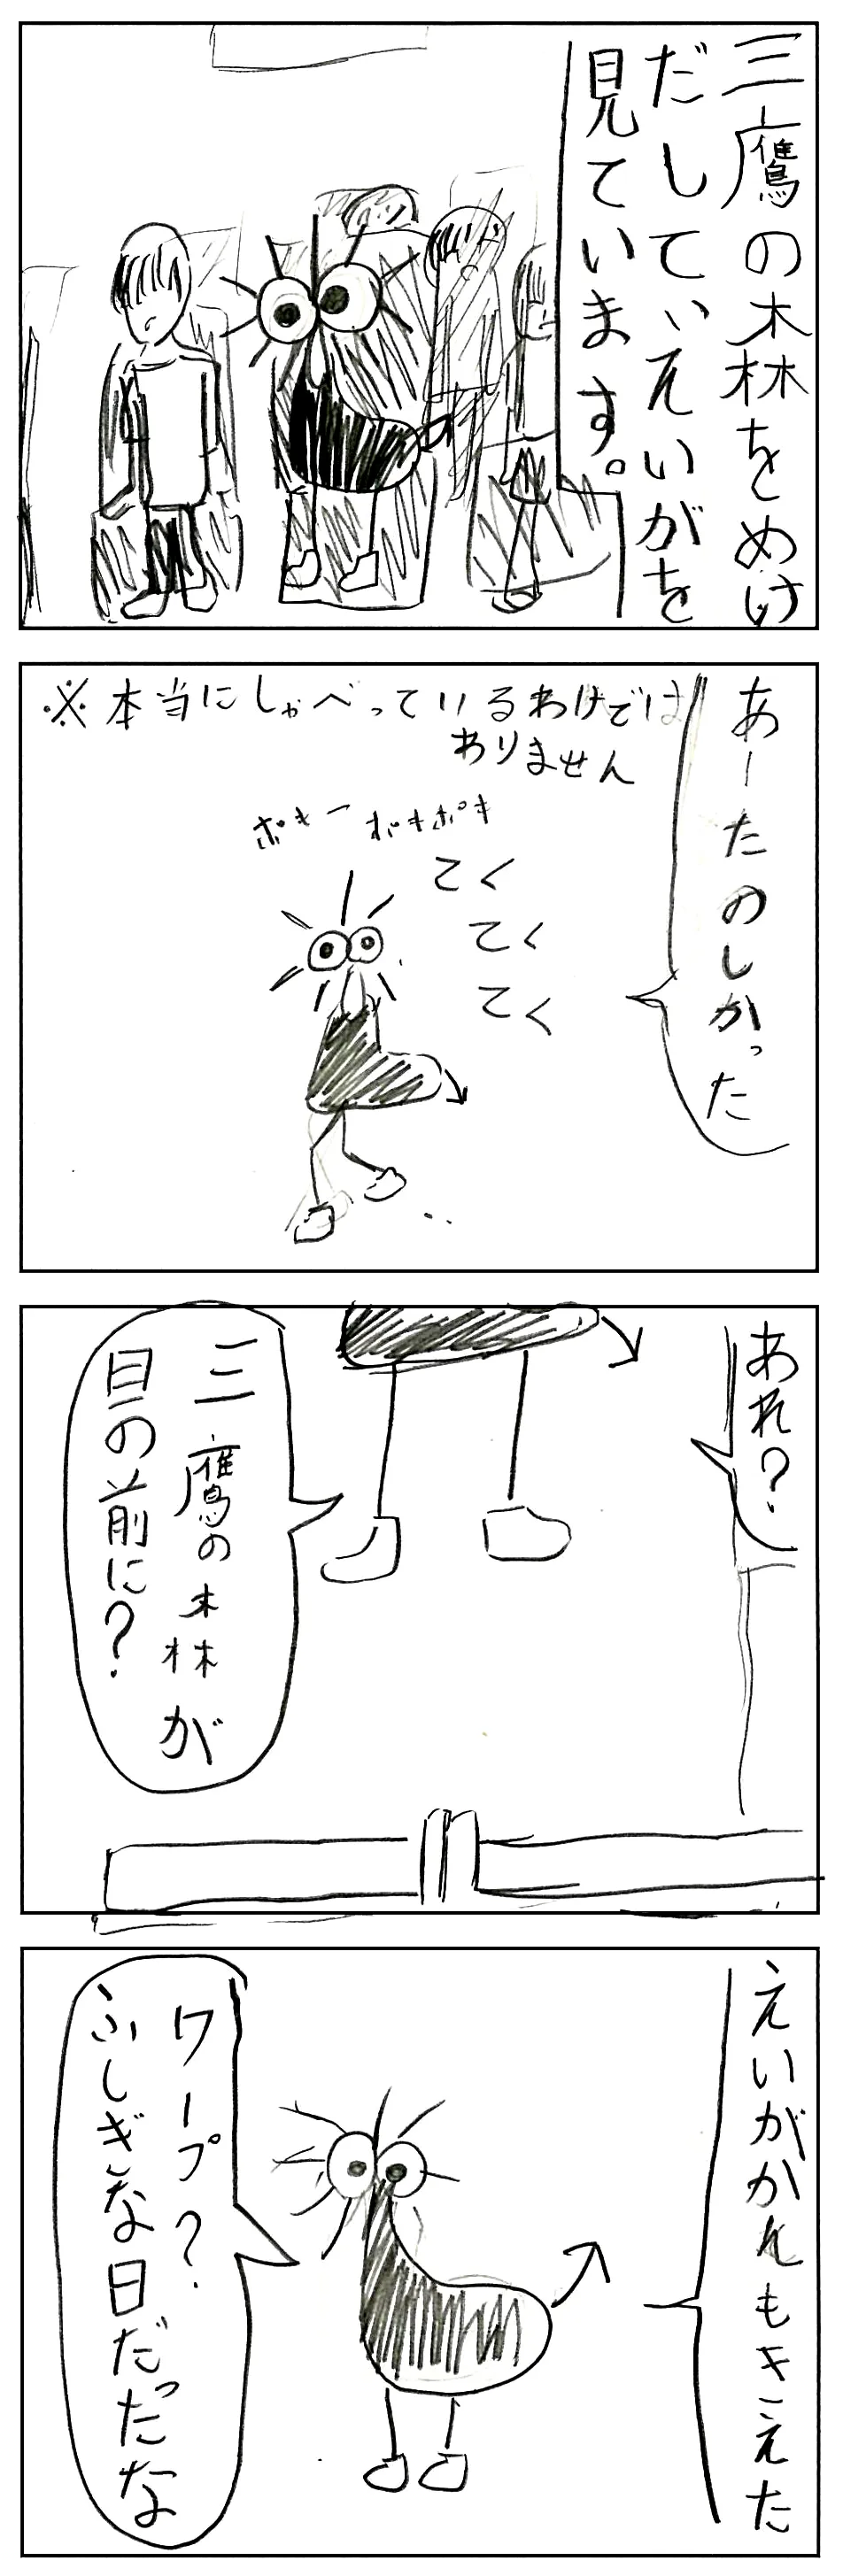 三鷹の森をめけ
だしていえいがを
見ています。
あーたのしかった
※本当にしゃべっているわけでは
ありません
ポキー ポキポキ
てく
てく
てく
あれ?
三鷹の森が
目の前に?
えいがかんもきえた
ワープ?
ふしぎな日だったな